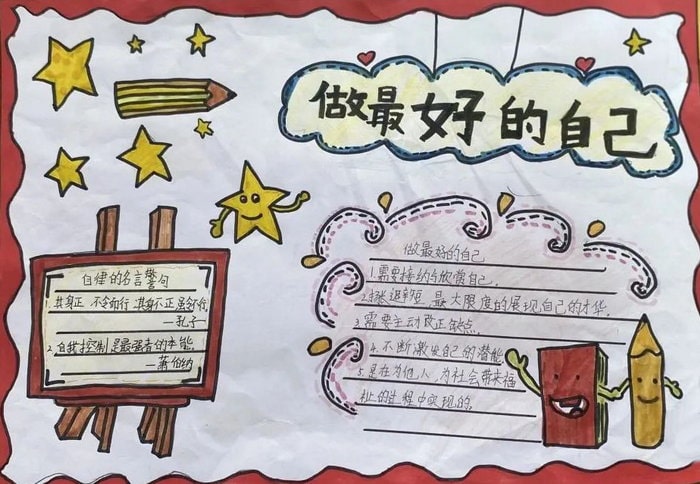 做最好的自己
自律的名言警句
1.其身正,不令而行,其身不正虽令不行
—孔子—
2.自我控制是最强者的本能。
—萧伯纳
做最好的自己
1.需要接纳与欣赏自己。
最大限度的展现自己的才华。
3.需要主动改正缺点。
4.不断激发自己的潜能
5.是在为他人,为社会带来福
祉的过程中实现的。